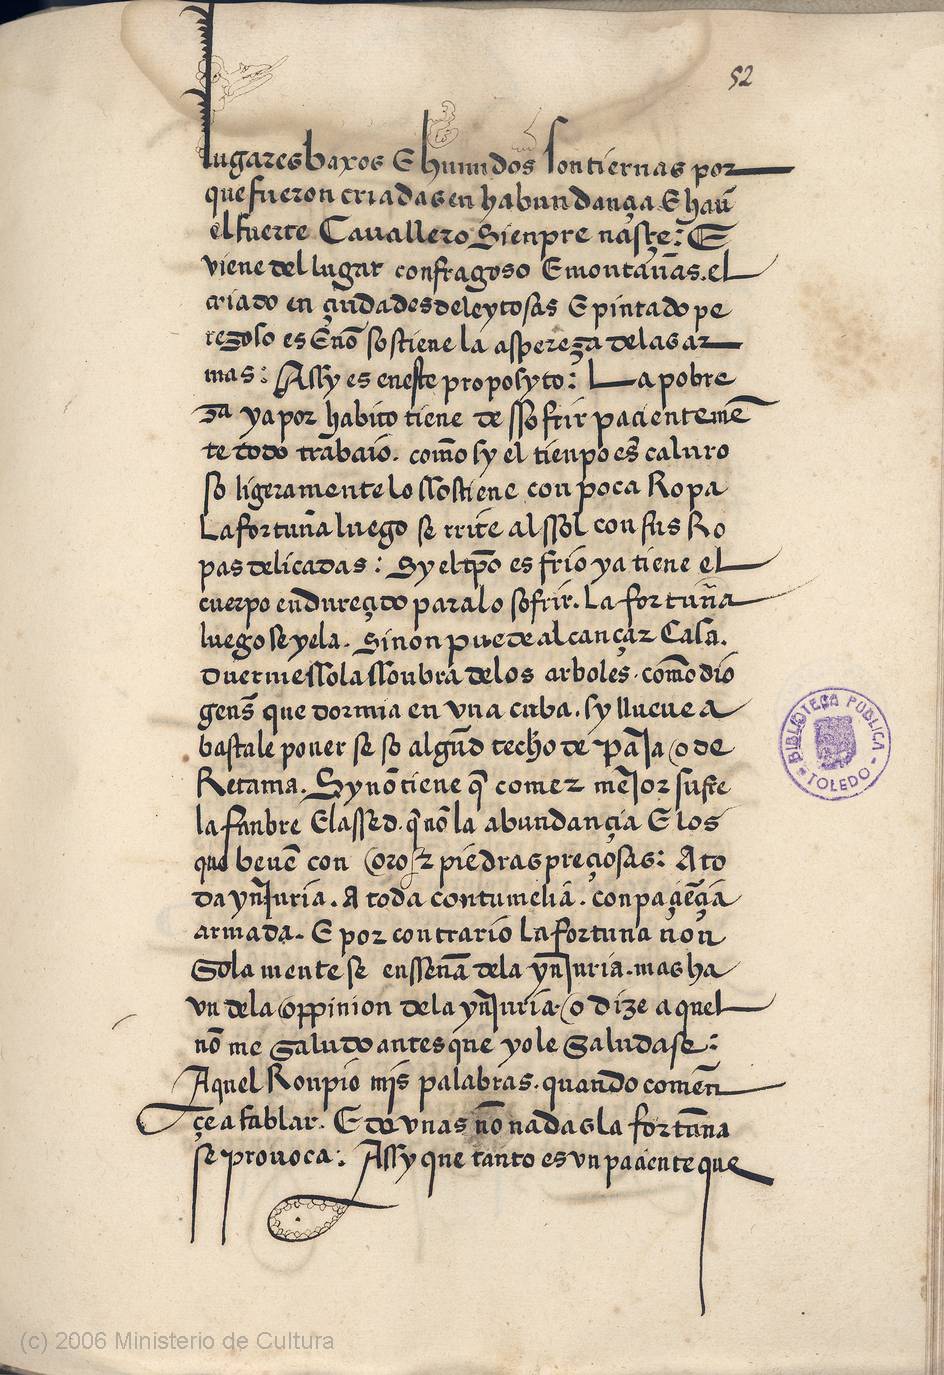 52
lugares baxos E humidos son tiernas por
que fueron criadas en habundança E hauñ
el fuerte Cauallero Sienpre nasçe: E
viene del lugar confragoso E montañas. el
criado en çiudades deleytosas E pintado pe
rezoso es E nō sostiene la aspereza de las ar
mas: Assy es en este proposyto: La pobre
za ya por habito tiene de ssofrir pacientemē
te todo trabaio. como sy el tienpo es caluro
so ligeramente lo ssostiene con poca Ropa
La fortuna luego se rrite al ssol con sus Ro
pas delicadas: Sy el tp̄o es frio ya tiene el
cuerpo endureçido para lo sofrir. La fortuna
luego se yela. Si non puede alcançar Casa.
Duerme sso la ssonbra de los arboles. como dio
genes que dormia en vna cuba. sy llueue a
bastale poner se so algūd techo de paja o de
Retama. Sy nō tiene q̄ comer mejor sufre
la fanbre E la ssed. q̄ nō la abundançia E los
que beuē con oro & piedras preçiosas: A to
da ynjuria. A toda contumelia. con paçēçia
armada. E por contrario La fortuna non
Sola mente se enssena de la ynjuria. mas ha
vn de la oppinion de la ynjuria. o dize aquel
nō me Saludo antes que yo le Saludase:
Aquel Ronpio mis palabras. quando comen
çe a fablar. E de vnas nō nadas la fortuna
se prouoca: Assy que tanto es vn paciente que
BIBLIOTECA PUBLICA
TOLEDO
(c) 2006 Ministerio de Cultura